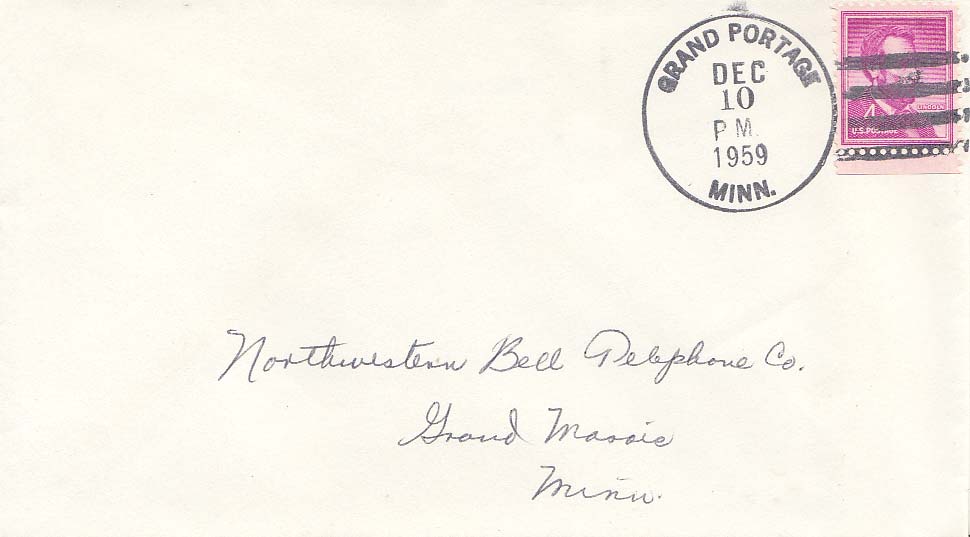 GRAND PORTAGE
DEC
10
P M.
1959
MINN.
4¢
LINCOLN
U.S. POSTAGE
Northwestern Bell Telephone Co.
Grand Maraie
Minn.